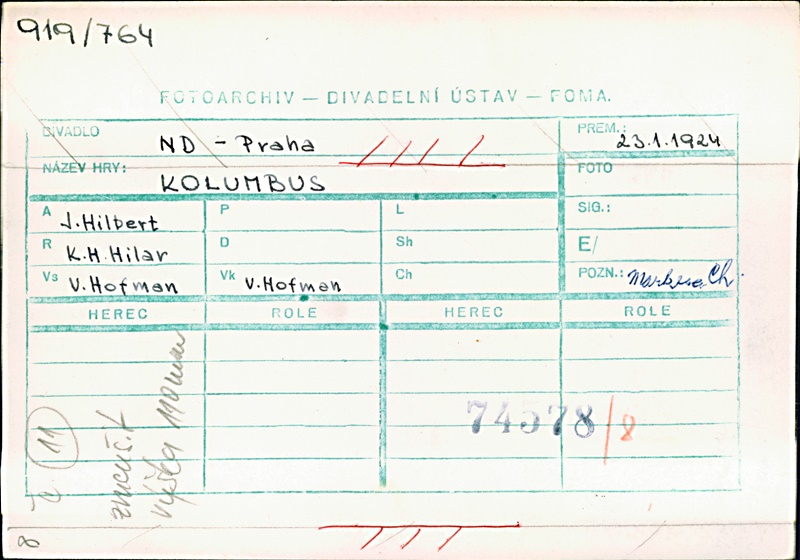 919/764
FOTOARCHIV — DIVADELNÍ ÚSTAV — FOMA.
DIVADLO ND - Praha
PREM.: 23.1.1924
NÁZEV HRY: KOLUMBUS
FOTO
A J.Hilbert P L
SIG.:
R K.H.Hilar D Sh
E/
Vs V.Hofman Vk V.Hofman Ch
POZN.: Ch.
HEREC ROLE HEREC ROLE
74578/8
č 11
zmenš.t
výška 110mm
8